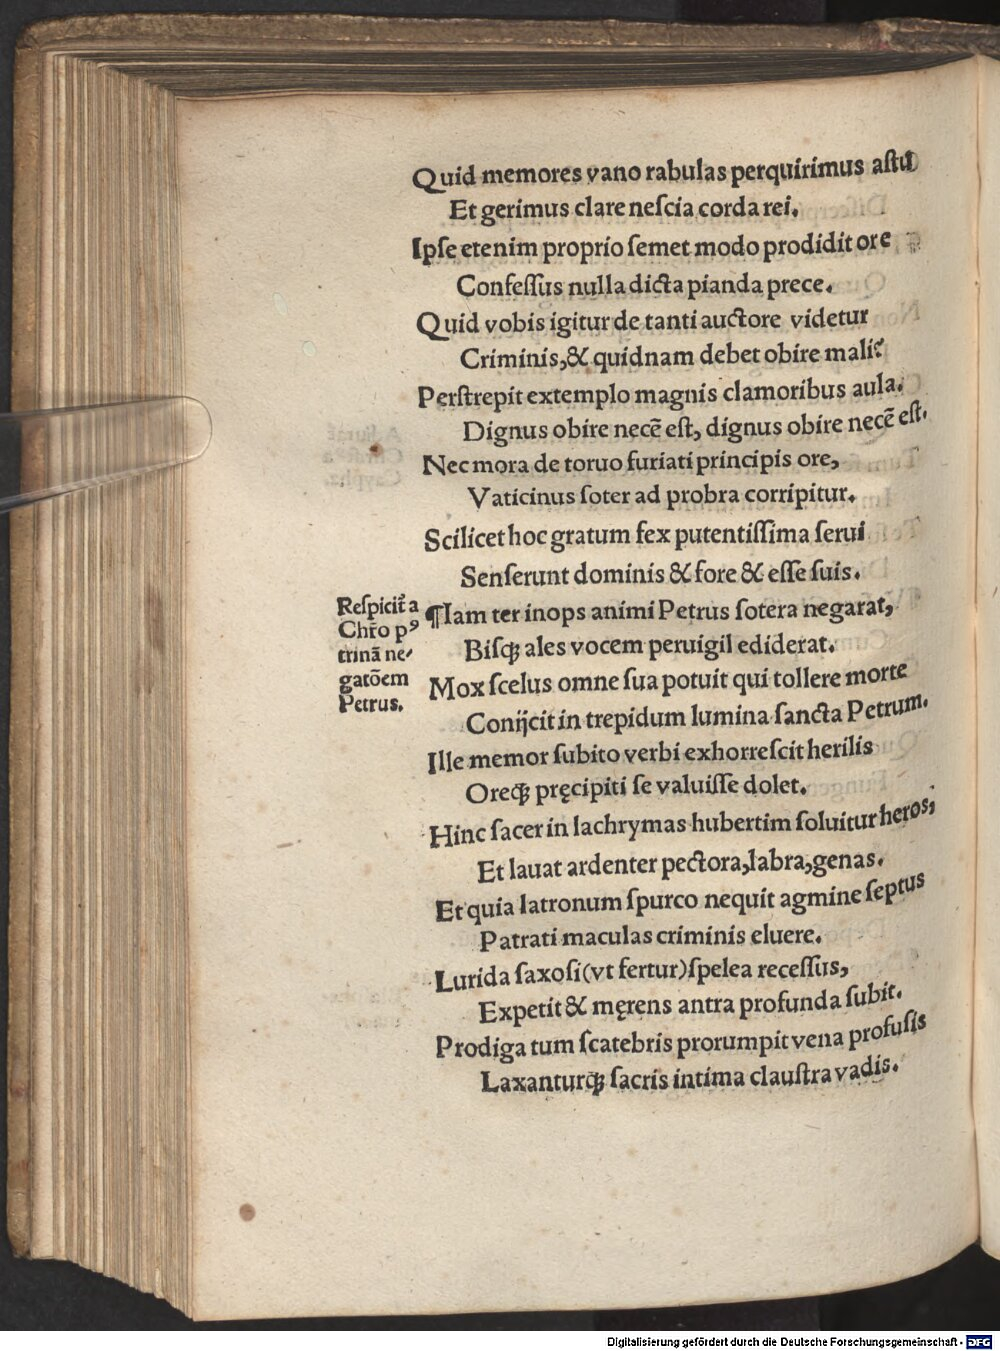 Quid memores vano rabulas perquirimus astu
Et gerimus clare neſcia corda rei.
Ipſe etenim proprio ſemet modo prodidit ore
Confeſſus nulla dicta pianda prece.
Quid vobis igitur de tanti auctore videtur
Criminis,& quidnam debet obire mali?
Perſtrepit extemplo magnis clamoribus aula.
Dignus obire necē eſt, dignus obire necē eſt.
Nec mora de toruo furiati principis ore,
Vaticinus ſoter ad probra corripitur.
Scilicet hoc gratum fex putentiſſima ſerui
Senſerunt dominis & fore & eſſe ſuis.
¶Iam ter inops animi Petrus ſotera negarat,
Biſqꝫ ales vocem peruigil ediderat.
Mox ſcelus omne ſua potuit qui tollere morte
Conijcit in trepidum lumina ſancta Petrum.
Ille memor ſubito verbi exhorreſcit herilis
Oreqꝫ pręcipiti ſe valuiſſe dolet.
Hinc ſacer in lachrymas hubertim ſoluitur heros,
Et lauat ardenter pectora,labra,genas.
Et quia latronum ſpurco nequit agmine ſeptus
Patrati maculas criminis eluere.
Lurida ſaxoſi(vt fertur)ſpelea receſſus,
Expetit & męrens antra profunda ſubit.
Prodiga tum ſcatebris prorumpit vena profuſis
Laxanturqꝫ ſacris intima clauſtra vadis.
Reſpicit̃ a
Chr̃o pꝰ
trinā ne⸗
gatōem
Petrus.
Digitalisierung gefördert durch die Deutsche Forschungsgemeinschaft - DFG